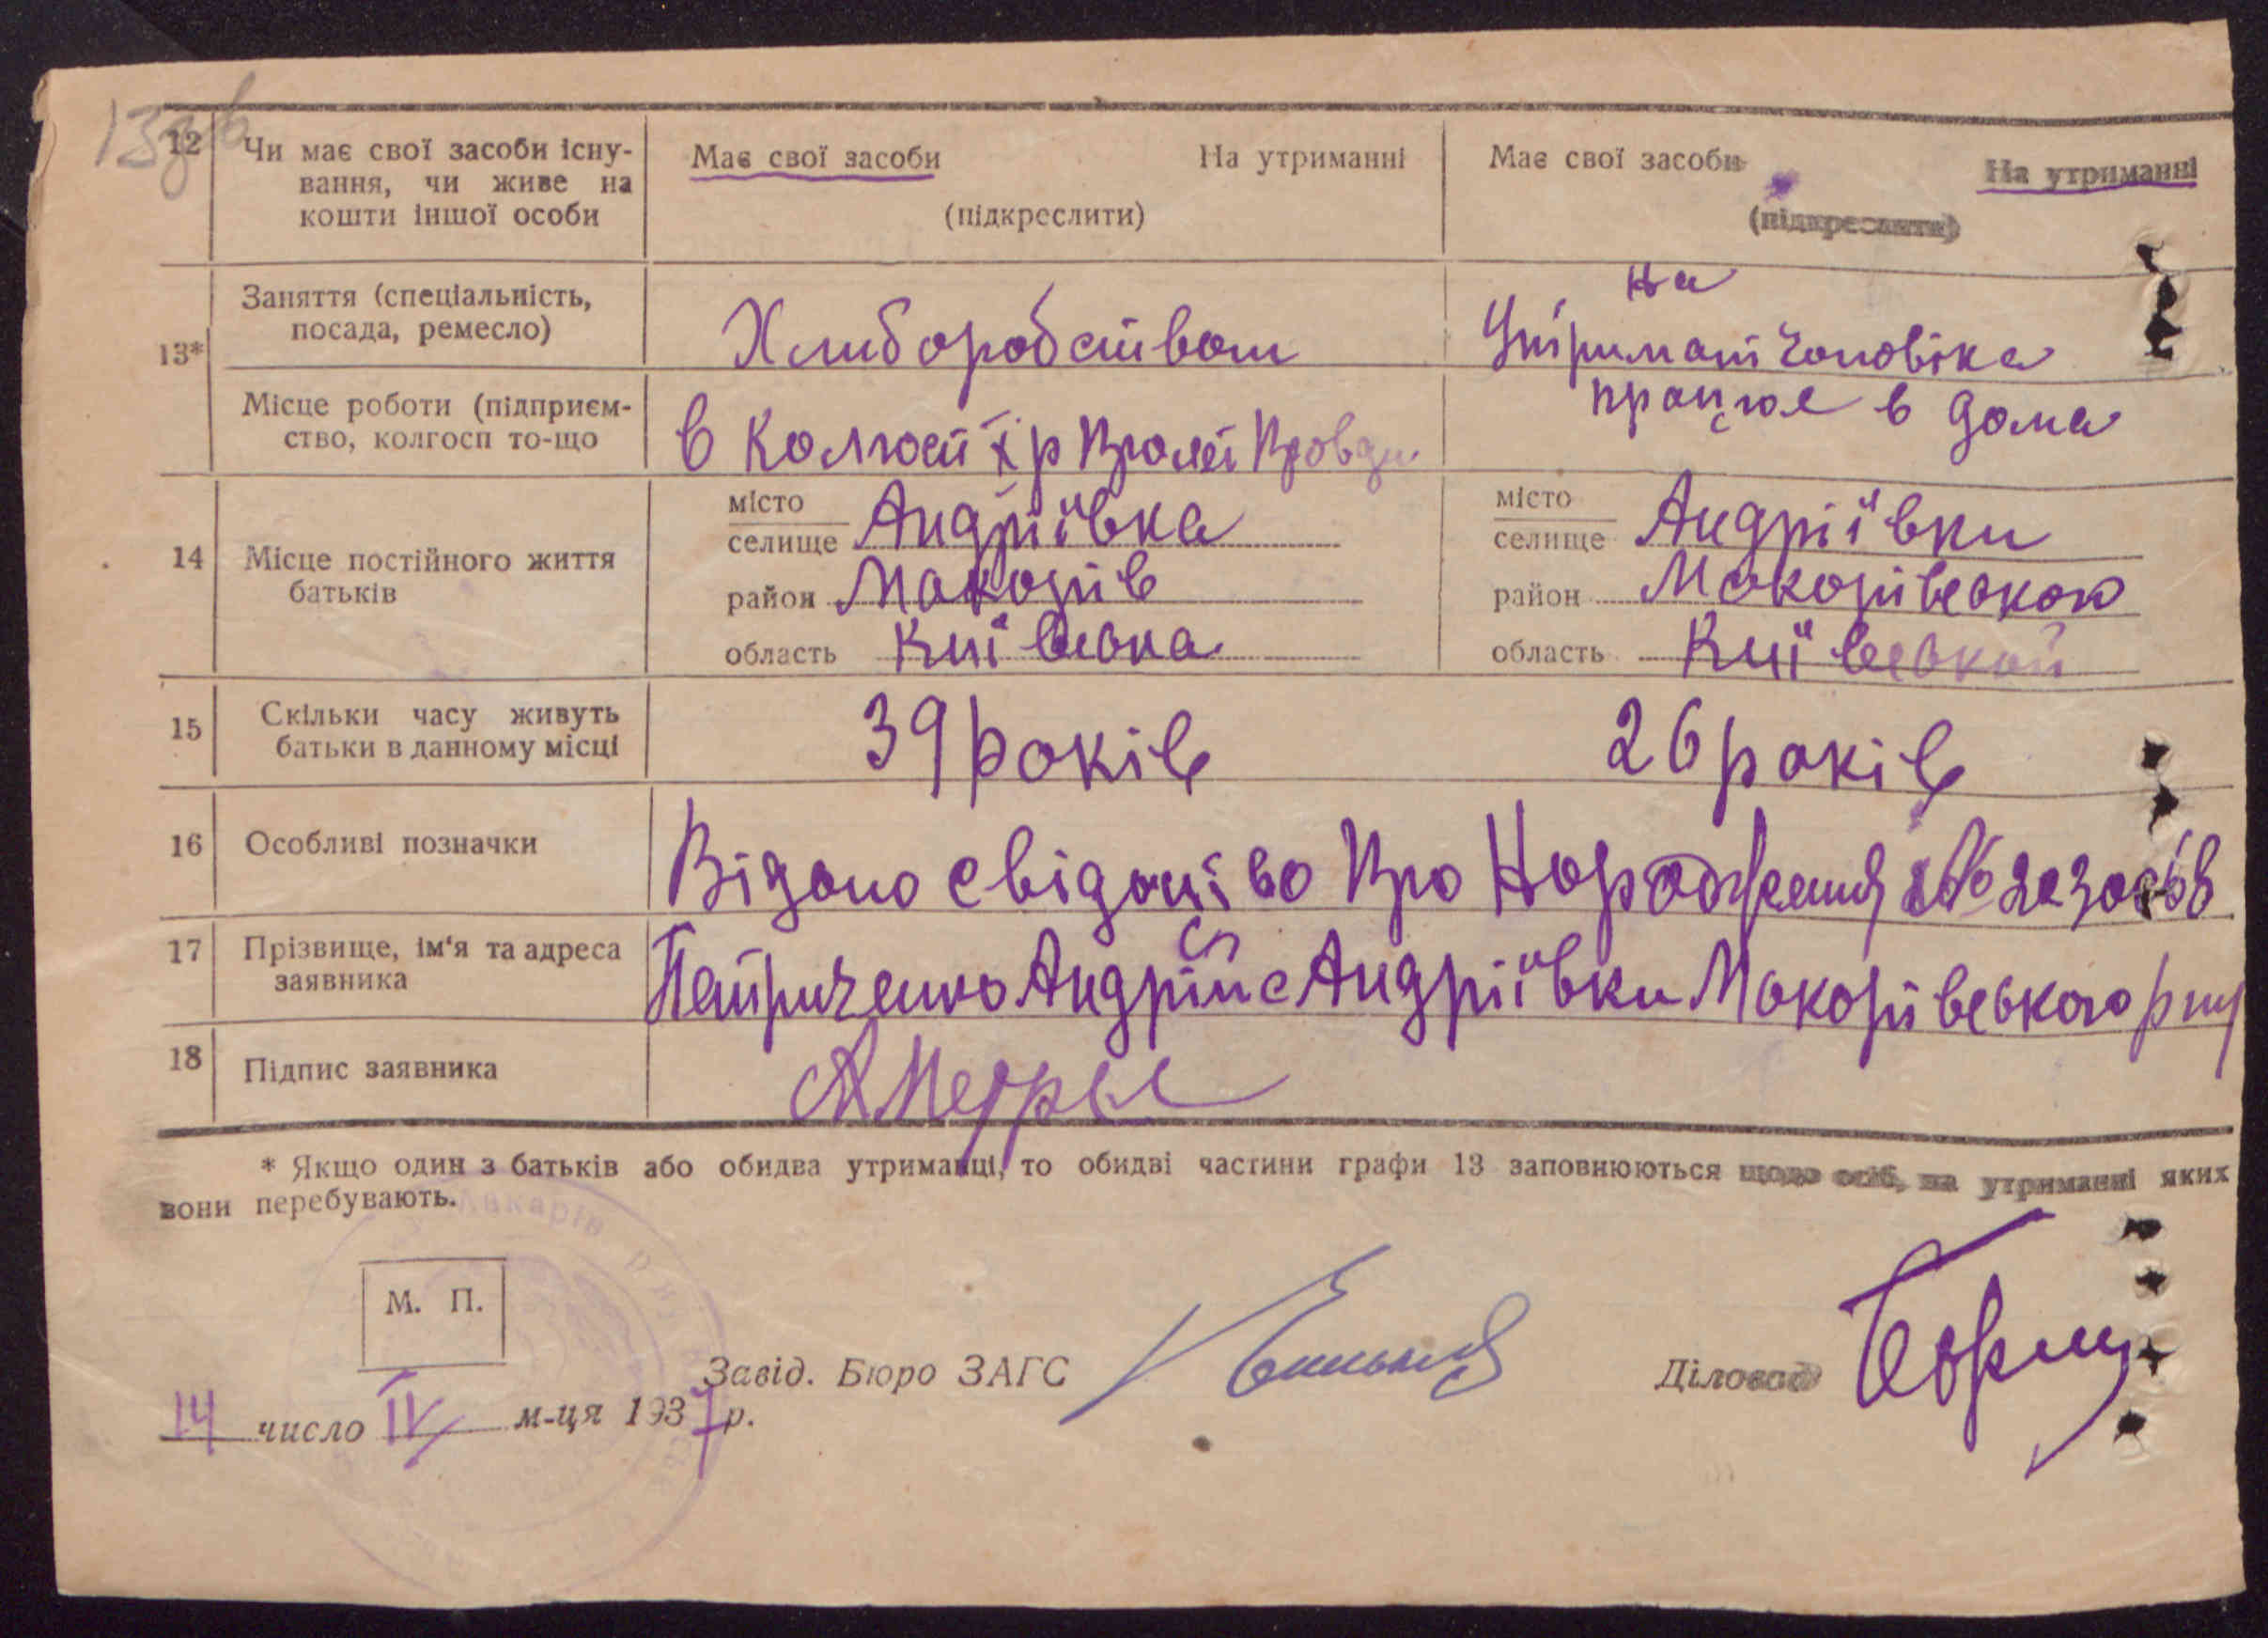 12 Чи має свої засоби існу-
вання, чи живе на
кошти іншої особи
Має свої засоби На утриманні
(підкреслити)
Має свої засоби На утриманні
(підкреслити)
13*
Заняття (спеціальність,
посада, ремесло)
Хлиборобством
на
Утримані чоловіка
Місце роботи (підприєм-
ство, колгосп то-що
в
працює в дома
14 Місце постійного життя
батьків
місто
селище Андріївка
район Макорів
область Київська
місто
селище Андріївки
район Макорівського
область Київської
15 Скільки часу живуть
батьки в данному місці
39 років
26 років
16 Особливі позначки
Відано свідоцтво Про Народження №
17 Прізвище, ім'я та адреса
заявника
Петриченко Андрій с Андріївки Макорівського р-ну
18 Підпис заявника
* Якщо один з батьків або обидва утриманці, то обидві частини графи 13 заповнюються щодо осіб, на утриманні яких
вони перебувають.
М. П.
Завід. Бюро ЗАГС
Діловод
14 число IV м-ця 1937 р.